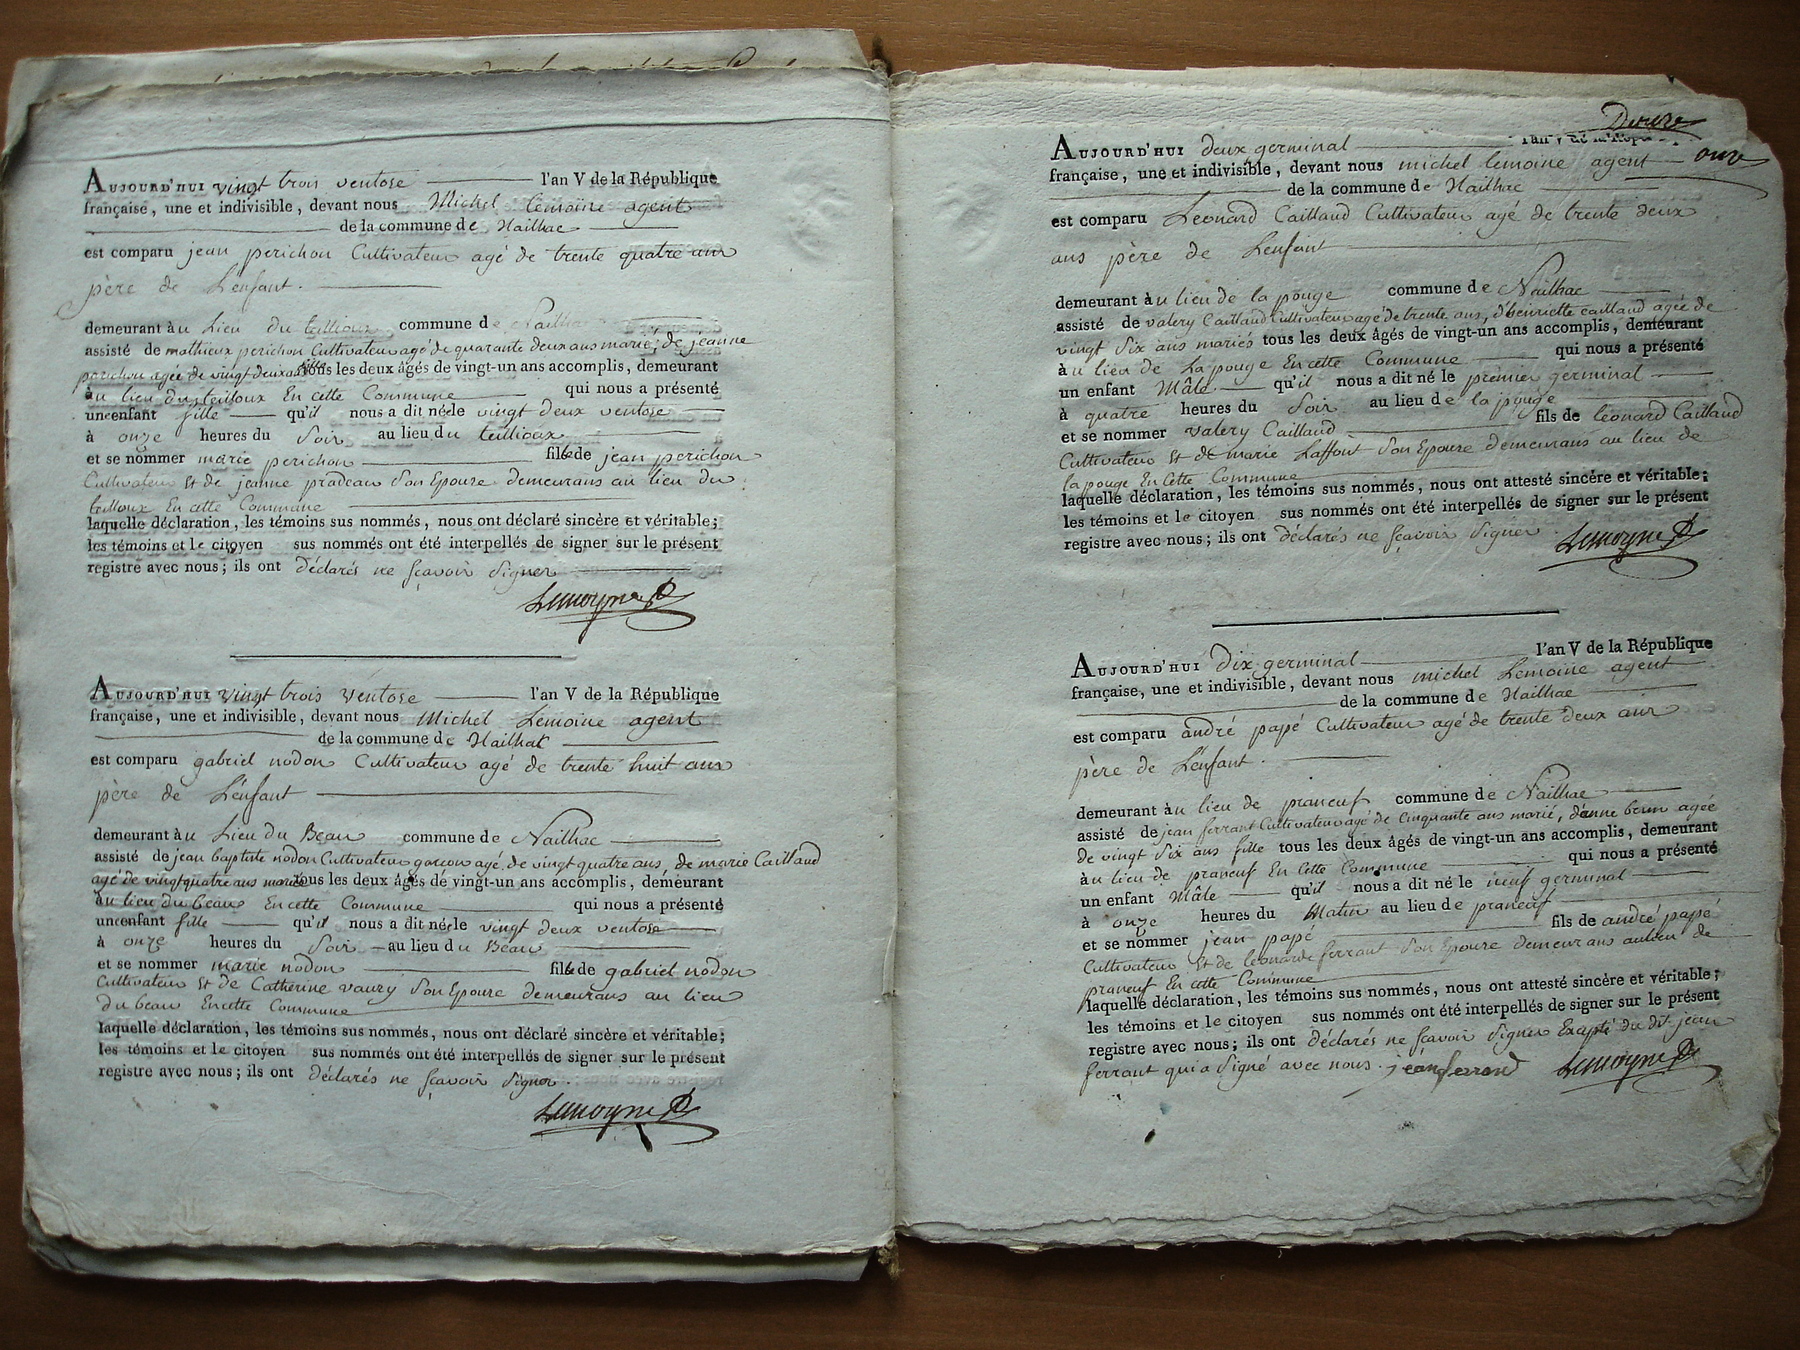 AUJOURD'HUI vingt trois ventose l'an V de la République
française, une et indivisible, devant nous Michel lemoine agent
de la commune de Nailhac
est comparu jean perichon Cultivateur agé de trente quatre ans
père de L'enfant.
demeurant àu Lieu du teillioux commune de Nailhac
assisté de mathieux perichon Cultivateur agé de quarante deux ans marié, de jeanne
perichon agée de vingt deux ans fille tous les deux âgés de vingt-un ans accomplis, demeurant
àu lieu du teilloux En cette Commune qui nous a présenté
un enfant fille qu'il nous a dit né le vingt deux ventose
à onze heures du Soir au lieu du teillioux
et se nommer marie perichon fille de jean perichon
Cultivateur Et de jeanne pradeau Son Epouse demeurans au lieu du
teilloux En cette Commune
laquelle déclaration, les témoins sus nommés, nous ont déclaré sincère et véritable;
les témoins et le citoyen sus nommés ont été interpellés de signer sur le présent
registre avec nous; ils ont déclarés ne sçavoir Signer
Lemoyne
AUJOURD'HUI vingt trois ventose l'an V de la République
française, une et indivisible, devant nous Michel Lemoine agent
de la commune de Nailhac
est comparu gabriel nodon Cultivateur agé de trente huit ans
père de L'enfant
demeurant àu Lieu du Beau commune de Nailhac
assisté de jean baptiste nodon Cultivateur garcon agé de vingt quatre ans, de marie Caillaud
agé de vingt quatre ans mariée tous les deux âgés de vingt-un ans accomplis, demeurant
àu lieu du beau En cette Commune qui nous a présenté
un enfant fille qu'il nous a dit né le vingt deux ventose
à onze heures du Soir au lieu du Beau
et se nommer marie nodon fille de gabriel nodon
Cultivateur Et de Catherine vaury Son Epouse demeurans au lieu
du beau En cette Commune
laquelle déclaration, les témoins sus nommés, nous ont déclaré sincère et véritable;
les témoins et le citoyen sus nommés ont été interpellés de signer sur le présent
registre avec nous; ils ont déclarés ne sçavoir Signer.
Lemoyne
AUJOURD'HUI deux germinal l'an V de la Rép
française, une et indivisible, devant nous michel lemoine agent
de la commune de Nailhac
est comparu Leonard Caillaud Cultivateur agé de trente deux
ans père de L'enfant
demeurant àu lieu de la pouge commune de Nailhac
assisté de valery Caillaud Cultivateur agé de trente ans, d'henriette caillaud agée de
vingt Six ans mariés tous les deux âgés de vingt-un ans accomplis, demeurant
àu lieu de La pouge En cette Commune qui nous a présenté
un enfant Mâle qu'il nous a dit né le premier germinal
à quatre heures du Soir au lieu de la pouge
et se nommer valery Caillaud fils de leonard Caillaud
Cultivateur Et de marie Laffont Son Epouse demeurans au lieu de
la pouge En cette Commune
laquelle déclaration, les témoins sus nommés, nous ont attesté sincère et véritable;
les témoins et le citoyen sus nommés ont été interpellés de signer sur le présent
registre avec nous; ils ont déclarés ne sçavoir Signer
Lemoyne
AUJOURD'HUI Dix germinal l'an V de la République
française, une et indivisible, devant nous michel Lemoine agent
de la commune de Nailhac
est comparu andré papé Cultivateur agé de trente deux ans
père de L'enfant.
demeurant àu lieu de praneuf commune de Nailhac
assisté de jean ferrant Cultivateur agé de Cinquante ans marié, d'anne agée
de vingt Six ans fille tous les deux âgés de vingt-un ans accomplis, demeurant
àu lieu de praneuf En Cette Commune qui nous a présenté
un enfant Mâle qu'il nous a dit né le neuf germinal
à onze heures du Matin au lieu de praneuf
et se nommer jean papé fils de andré papé
Cultivateur Et de leonarde ferrant Son Epouse demeurans au lieu de
praneuf En cette Commune
laquelle déclaration, les témoins sus nommés, nous ont attesté sincère et véritable;
les témoins et le citoyen sus nommés ont été interpellés de signer sur le présent
registre avec nous; ils ont déclarés ne sçavoir Signer Exapté du dit jean
ferrant qui a Signé avec nous. jean ferrand Lemoyne